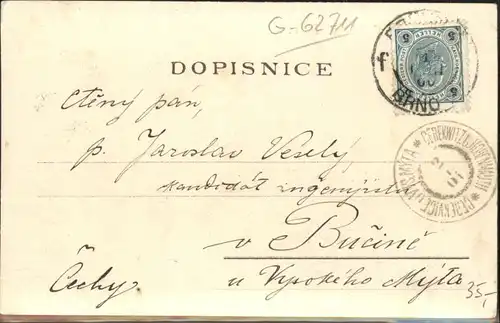 G-62711
DOPISNICE
BRNO
Ctěný pán,
p. Jaroslav Veselý,
kandidát inženýrství
v Bučině
Čechy
u Vysokého Mýta
35,-